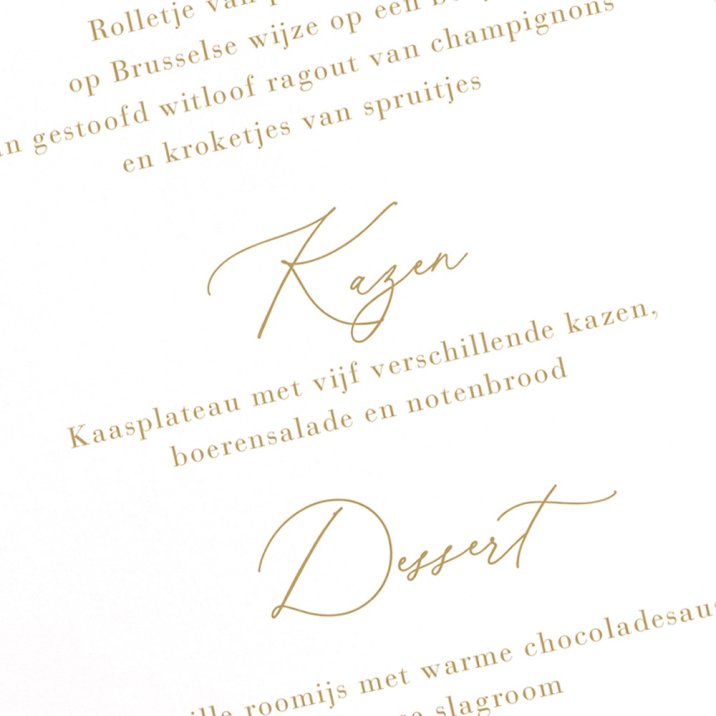 Rolletje
op Brusselse wijze op een
gestoofd witloof ragout van champignons
en kroketjes van spruitjes
Kazen
Kaasplateau met vijf verschillende kazen,
boerensalade en notenbrood
Dessert
roomijs met warme chocoladesaus
slagroom